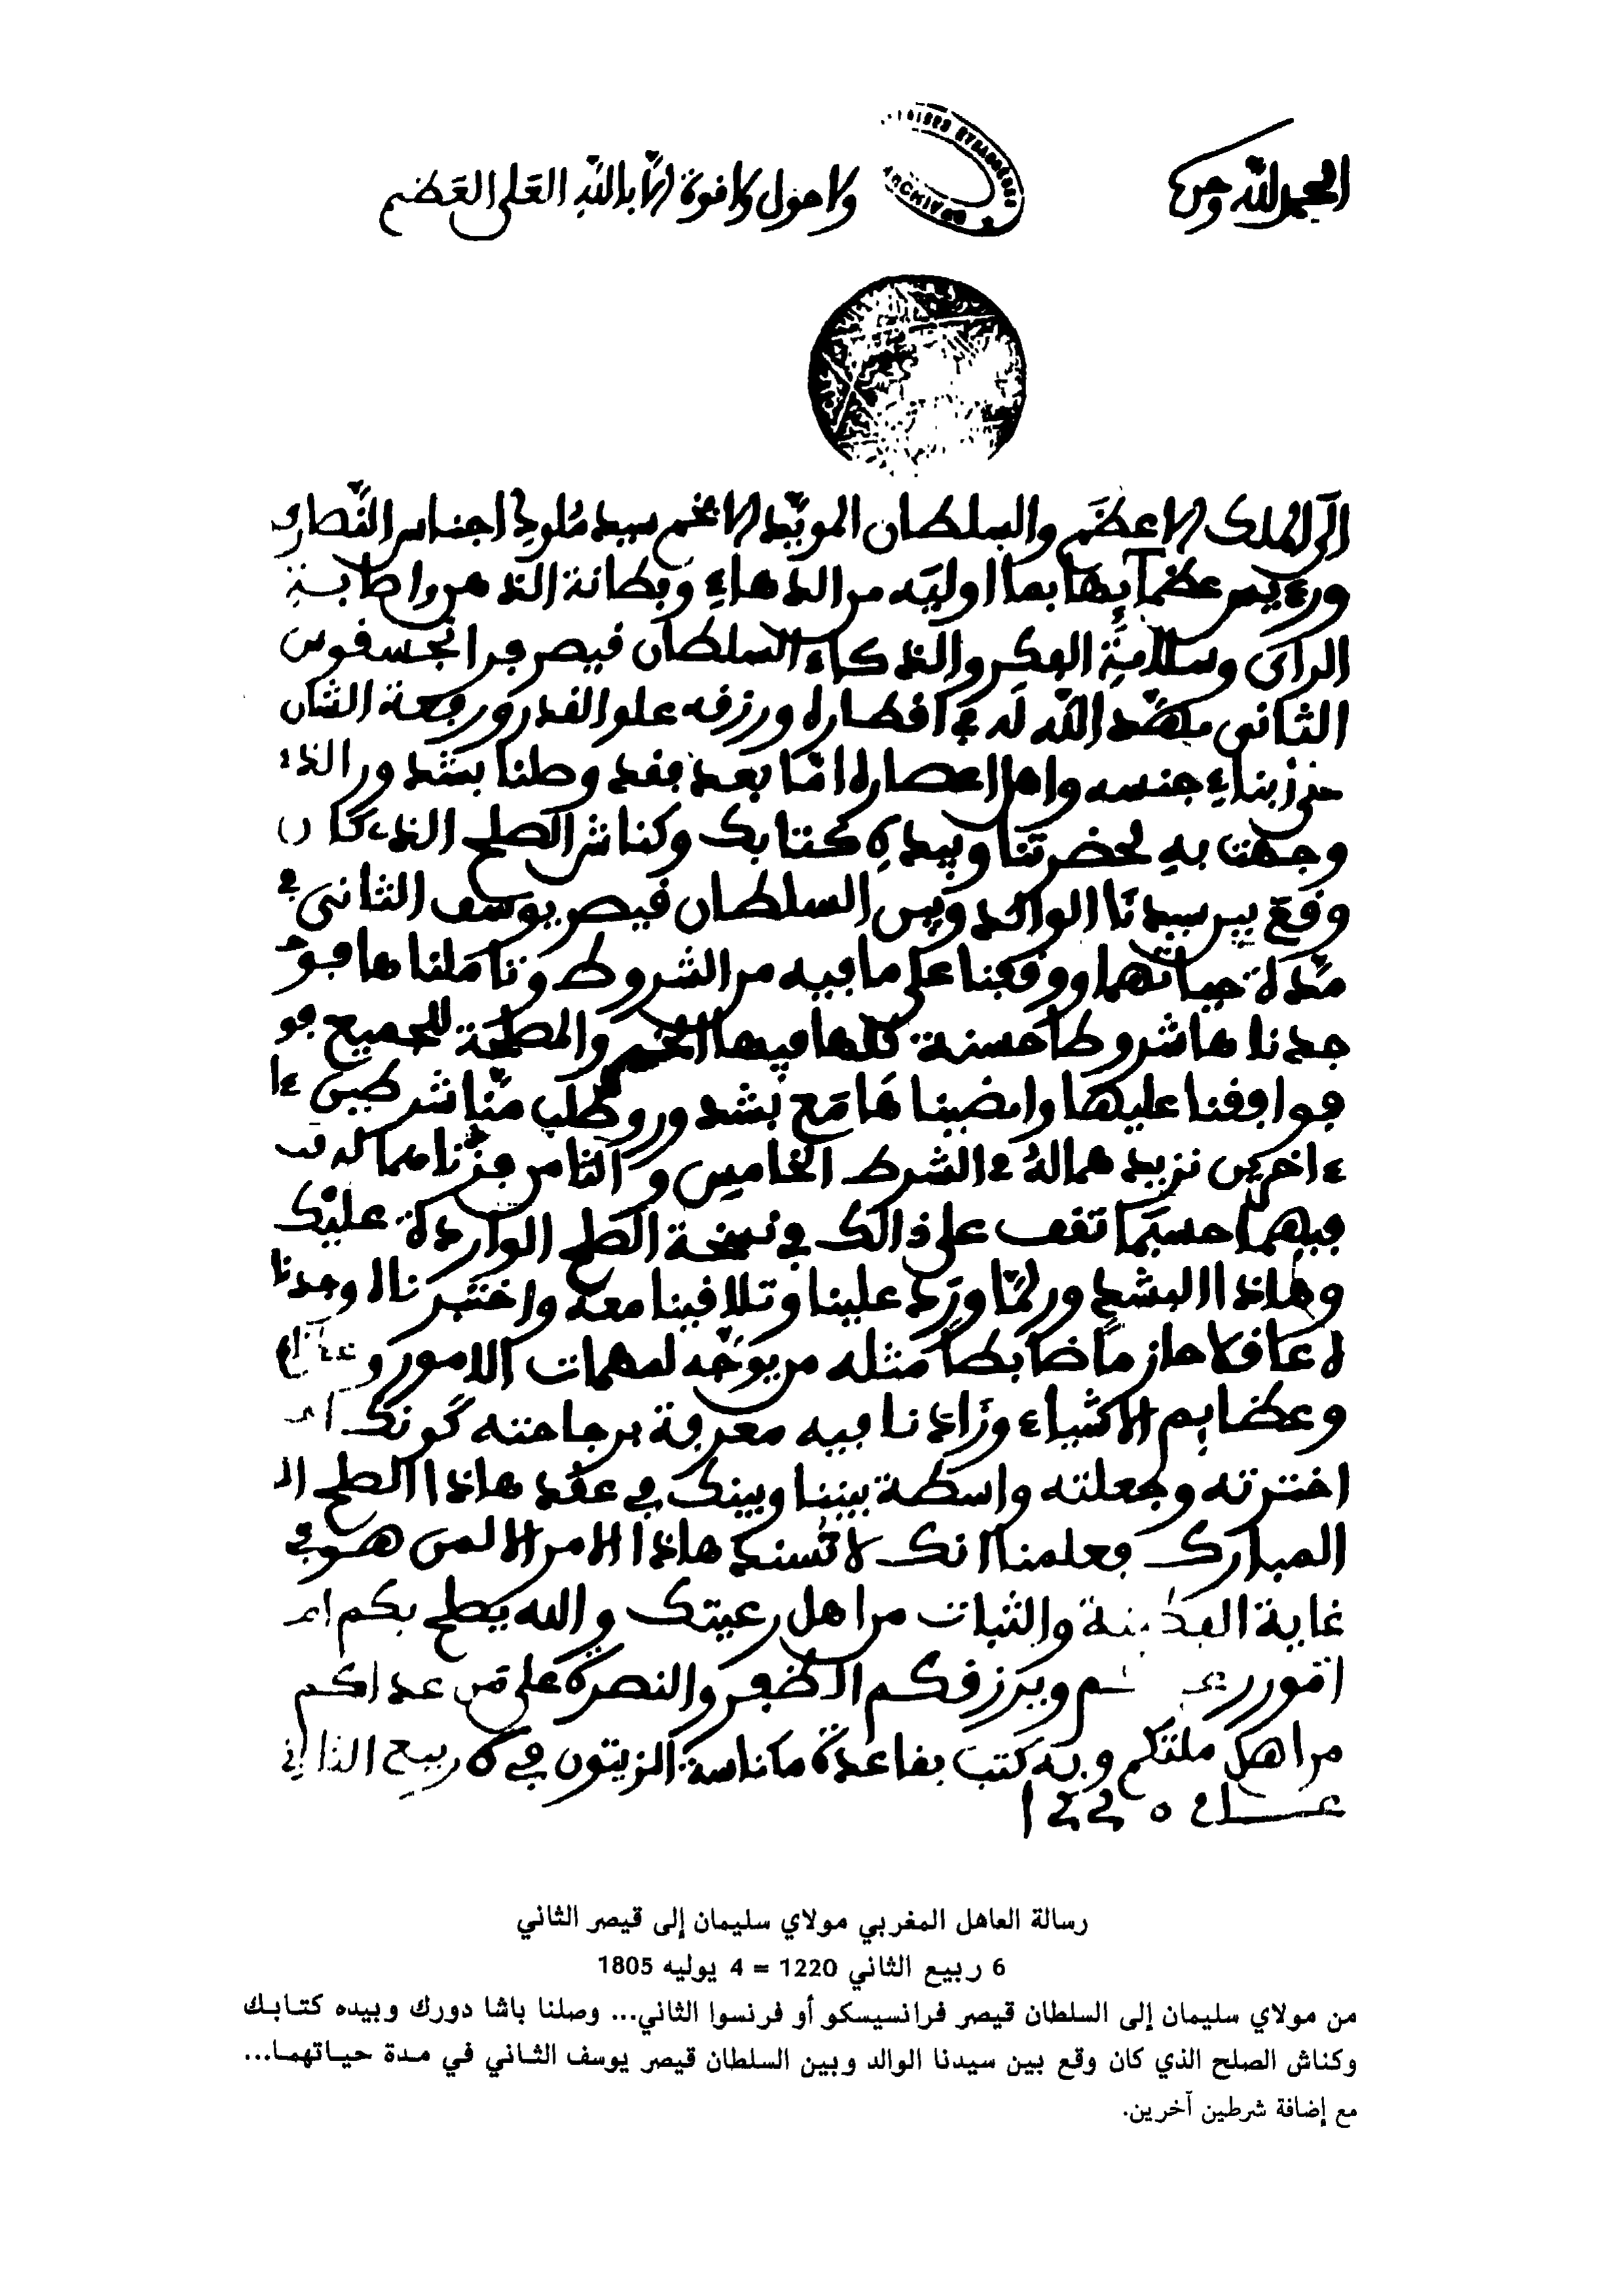 الحمد لله وحده
ولا حول ولا قوة إلا بالله العلي العظيم
ARCHIVOS
الى الملك الاعظم والسلطان المويد الافخم سيد ملوك اجناس النصارى
ورءيس عظمايها بما اوليه من الدهاء وبطانة الذهن واصابة
الراى وسلامة الفكر والذكاء السلطان فيصر فرانجسقوس
الثانى مهد الله له في اقطاره ورزقه علو القدر ورفعة الشان
ابناء جنسه واهل اعصاره اما بعد فقد وطنا بشدور الذ
وجهت به لحضرتنا وبيده كتابك وكناش الصلح الذى كان
وقع بين سيدنا الوالد وبين السلطان قيصر يوسف الثانى في
مدة حياتهما ووقفنا على ما فيه من الشروط وتاملناها فو
جدناها شروطا حسنة كلها فيها والمصلحة للجميع فو
فوافقنا عليها وامضيناها مع بشدور وطلب منا شرطين ءا
ءاخرين نزيدهما له في الشرط الخامس والثامن فزدناهما له
فيهما حسبما تقف على ذالك في نسخة الصلح الواردة عليك
وهاذا البشدور لما ورد علينا وتلاقينا معه واختبرناه وجدنا
ه عاقلا حازما ضابطا مثله من يوجه لمهمات الامور
وعظايم الاشياء وزادنا فيه معرفة برجاحته كونك
اخترته وجعلته واسطة بيننا وبينك في عقد هاذا الصلح ال
المبارك فعلمنا انك لا تسند هاذا الامر الا لمن هو في
غاية والثبات من اهل رعيتك والله يصلح بكم امـ
امور ويرزقكم الظفر والنصرة على من عداكم
من اهل ملتكم وبه كتب بقاعدة مكناسة الزيتون في 6 ربيع الثاني
عــام 1220
رسالة العاهل المغربي مولاي سليمان إلى قيصر الثاني
6 ربيع الثاني 1220 = 4 يوليه 1805
من مولاي سليمان إلى السلطان قيصر فرانسيسكو أو فرنسوا الثاني... وصلنا باشا دورك وبيده كتابك
وكناش الصلح الذي كان وقع بين سيدنا الوالد وبين السلطان قيصر يوسف الثاني في مدة حياتهما...
مع إضافة شرطين آخرين.